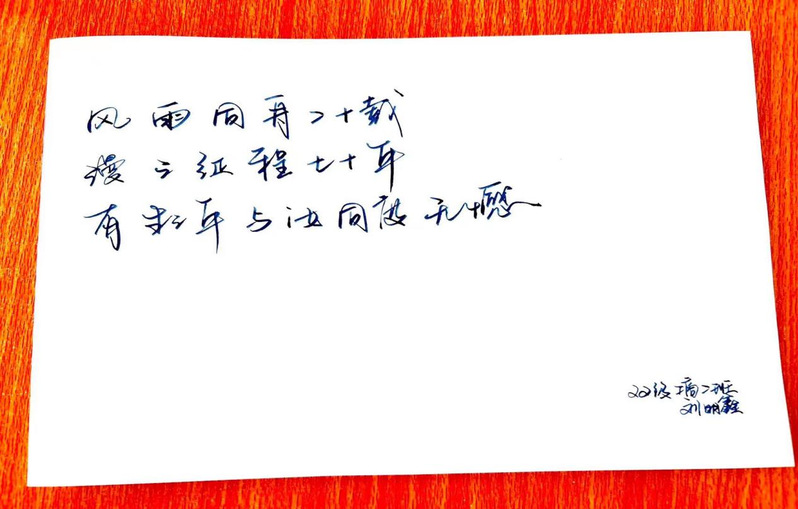 风雨同舟二十载
漫漫征程七十年
有数年与汝同度无憾
202级 二班
刘明鑫